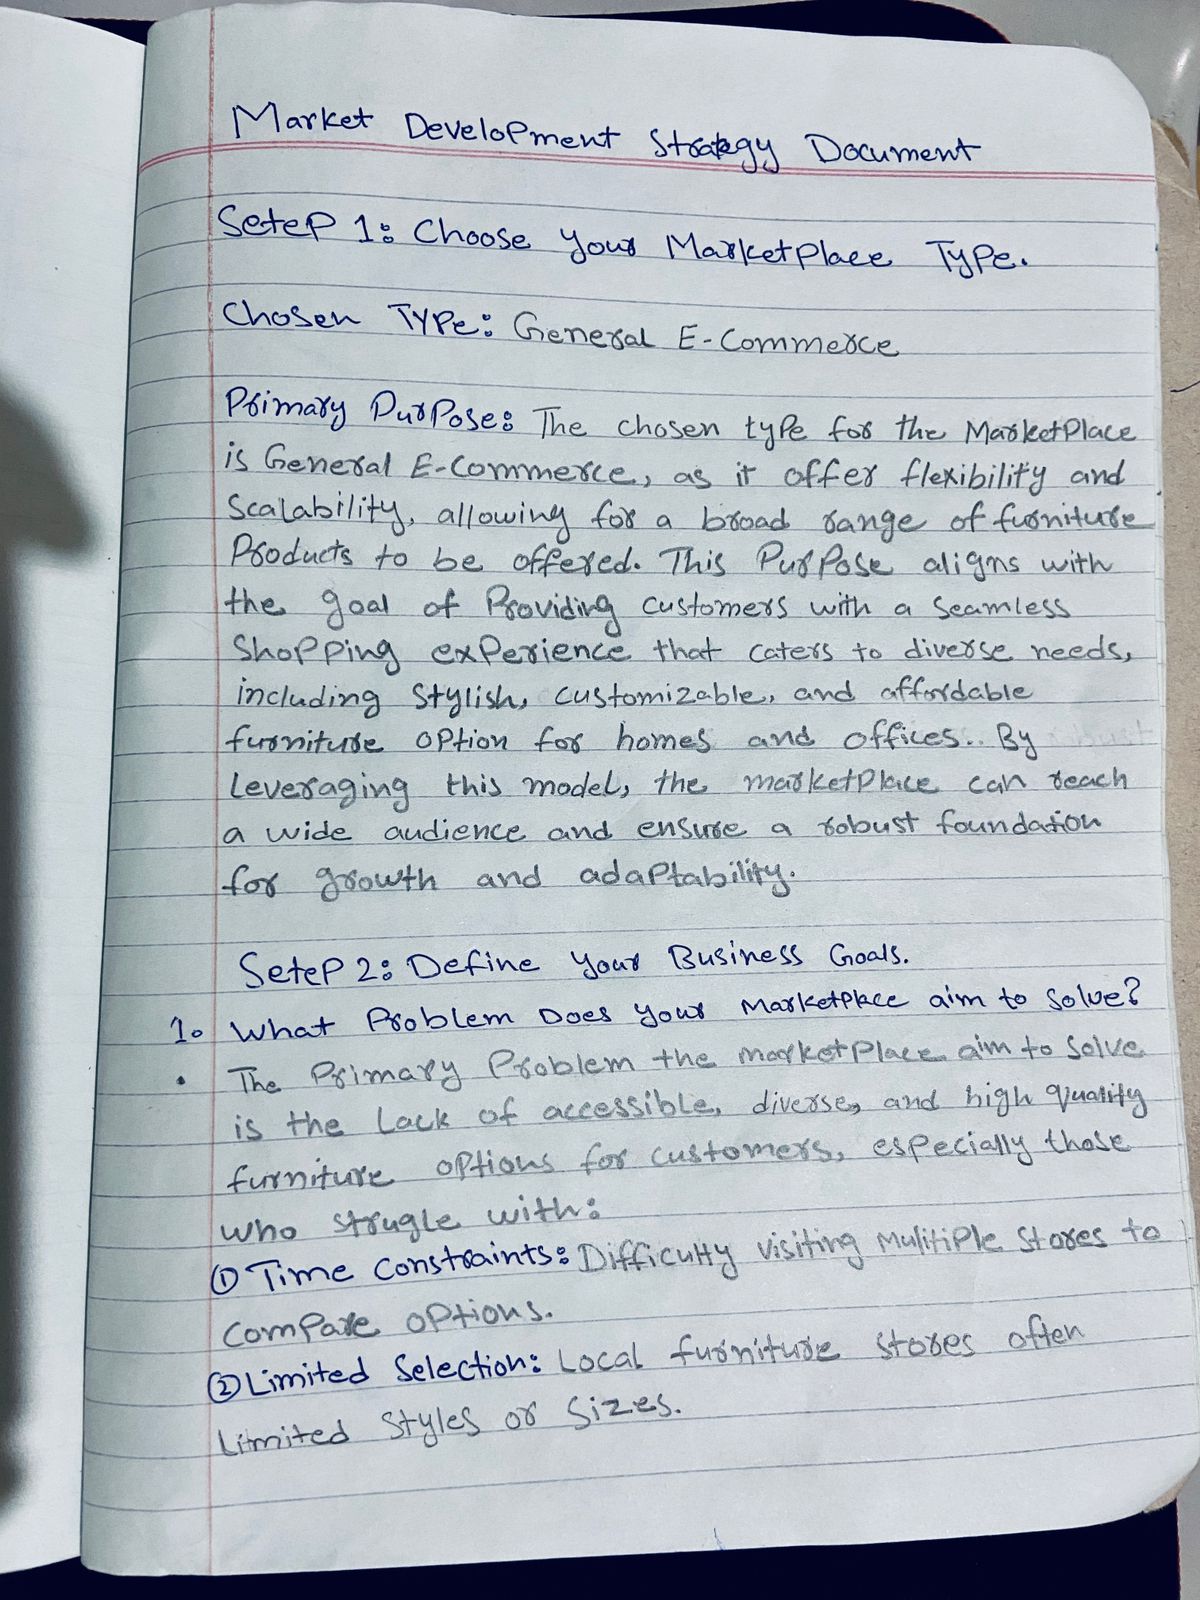 Market Development Strategy Document
Setep 1: Choose your Marketplace Type.
Chosen Type: General E-Commerce
Primary Purpose: The chosen type for the Marketplace
is General E-Commerce, as it offer flexibility and
Scalability, allowing for a broad range of furniture
Products to be offered. This Purpose aligns with
the goal of Providing customers with a seamless
Shopping experience that caters to diverse needs,
including stylish, customizable, and affordable
furniture option for homes and offices.. By
Leveraging this model, the marketplace can reach
a wide audience and ensure a robust foundation
for growth and adaptability.
Setep 2: Define your Business Goals.
1. What Problem Does your Marketplace aim to solve?
• The Primary Problem the marketplace aim to solve
is the Lack of accessible, diverse, and high quality
furniture options for customers, especially those
who strugle with:
① Time constraints: Difficulty visiting Mulitiple stores to
Compare options.
② Limited Selection: Local furniture stores often
Limited styles or sizes.